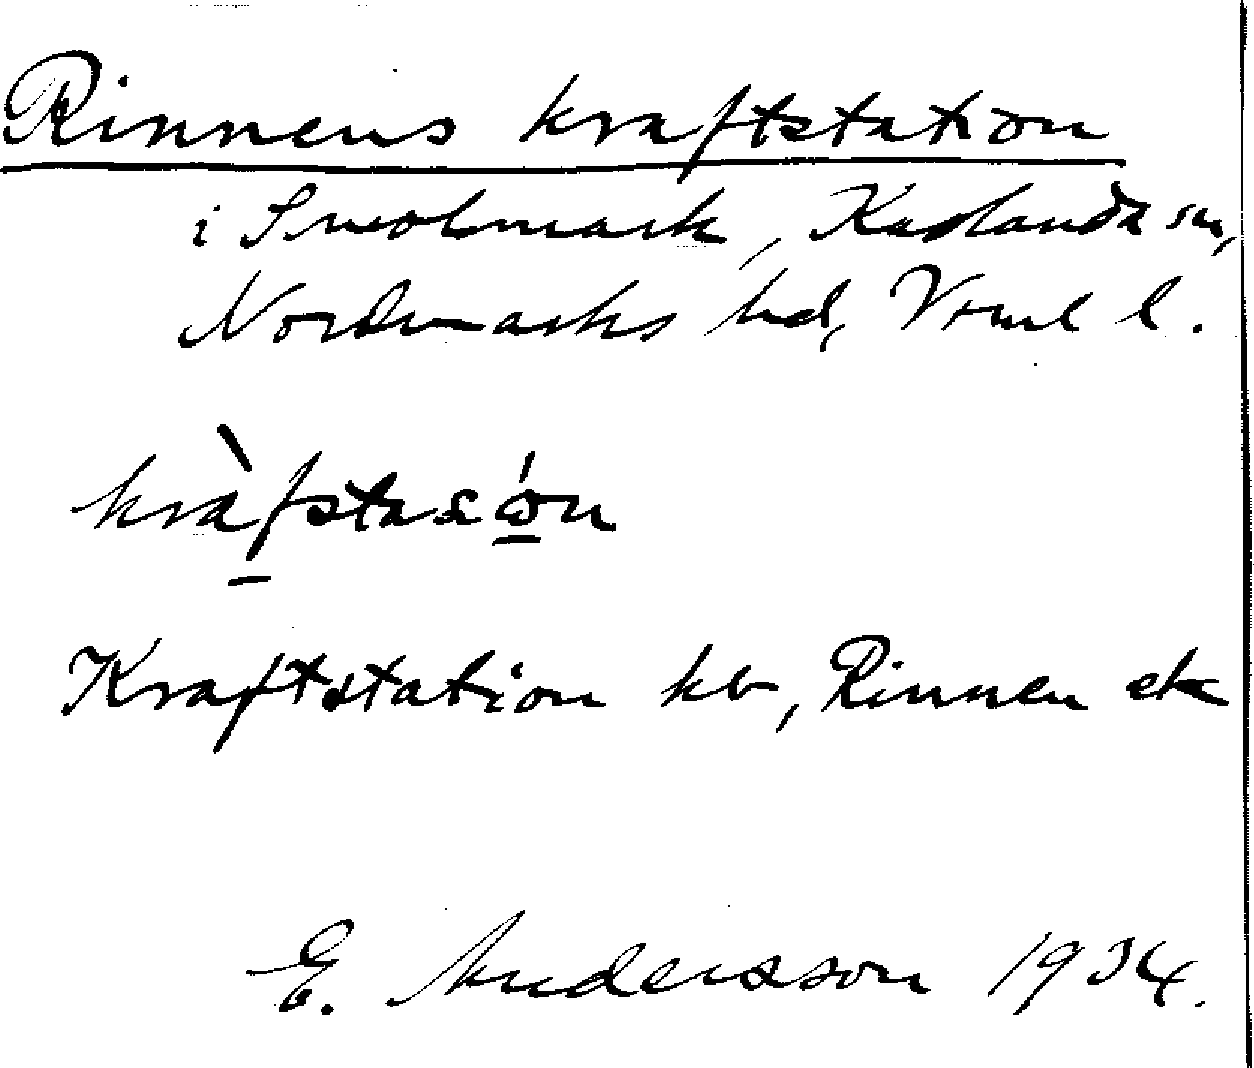 Rinnens kraftstation
i Smolmark, Karlanda sn,
Nordmarks hd, Vrml l.
Kraftstation kb, Rinnen ek
E. Andersson 1934.